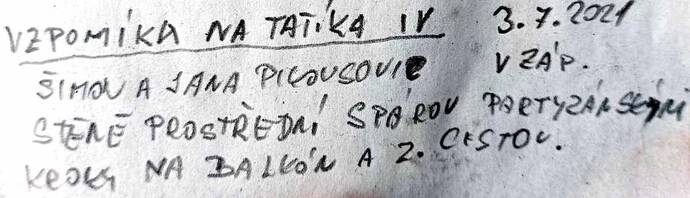 VZPOMÍKA NA TAŤÍKA IV 3.7.2021
ŠIMON A JANA V ZÁP.
STĚNĚ PROSTŘEDNÍ SPÁROU PARTYZÁNSKÝMI
KROKY NA BALKÓN A 2. CESTOU.